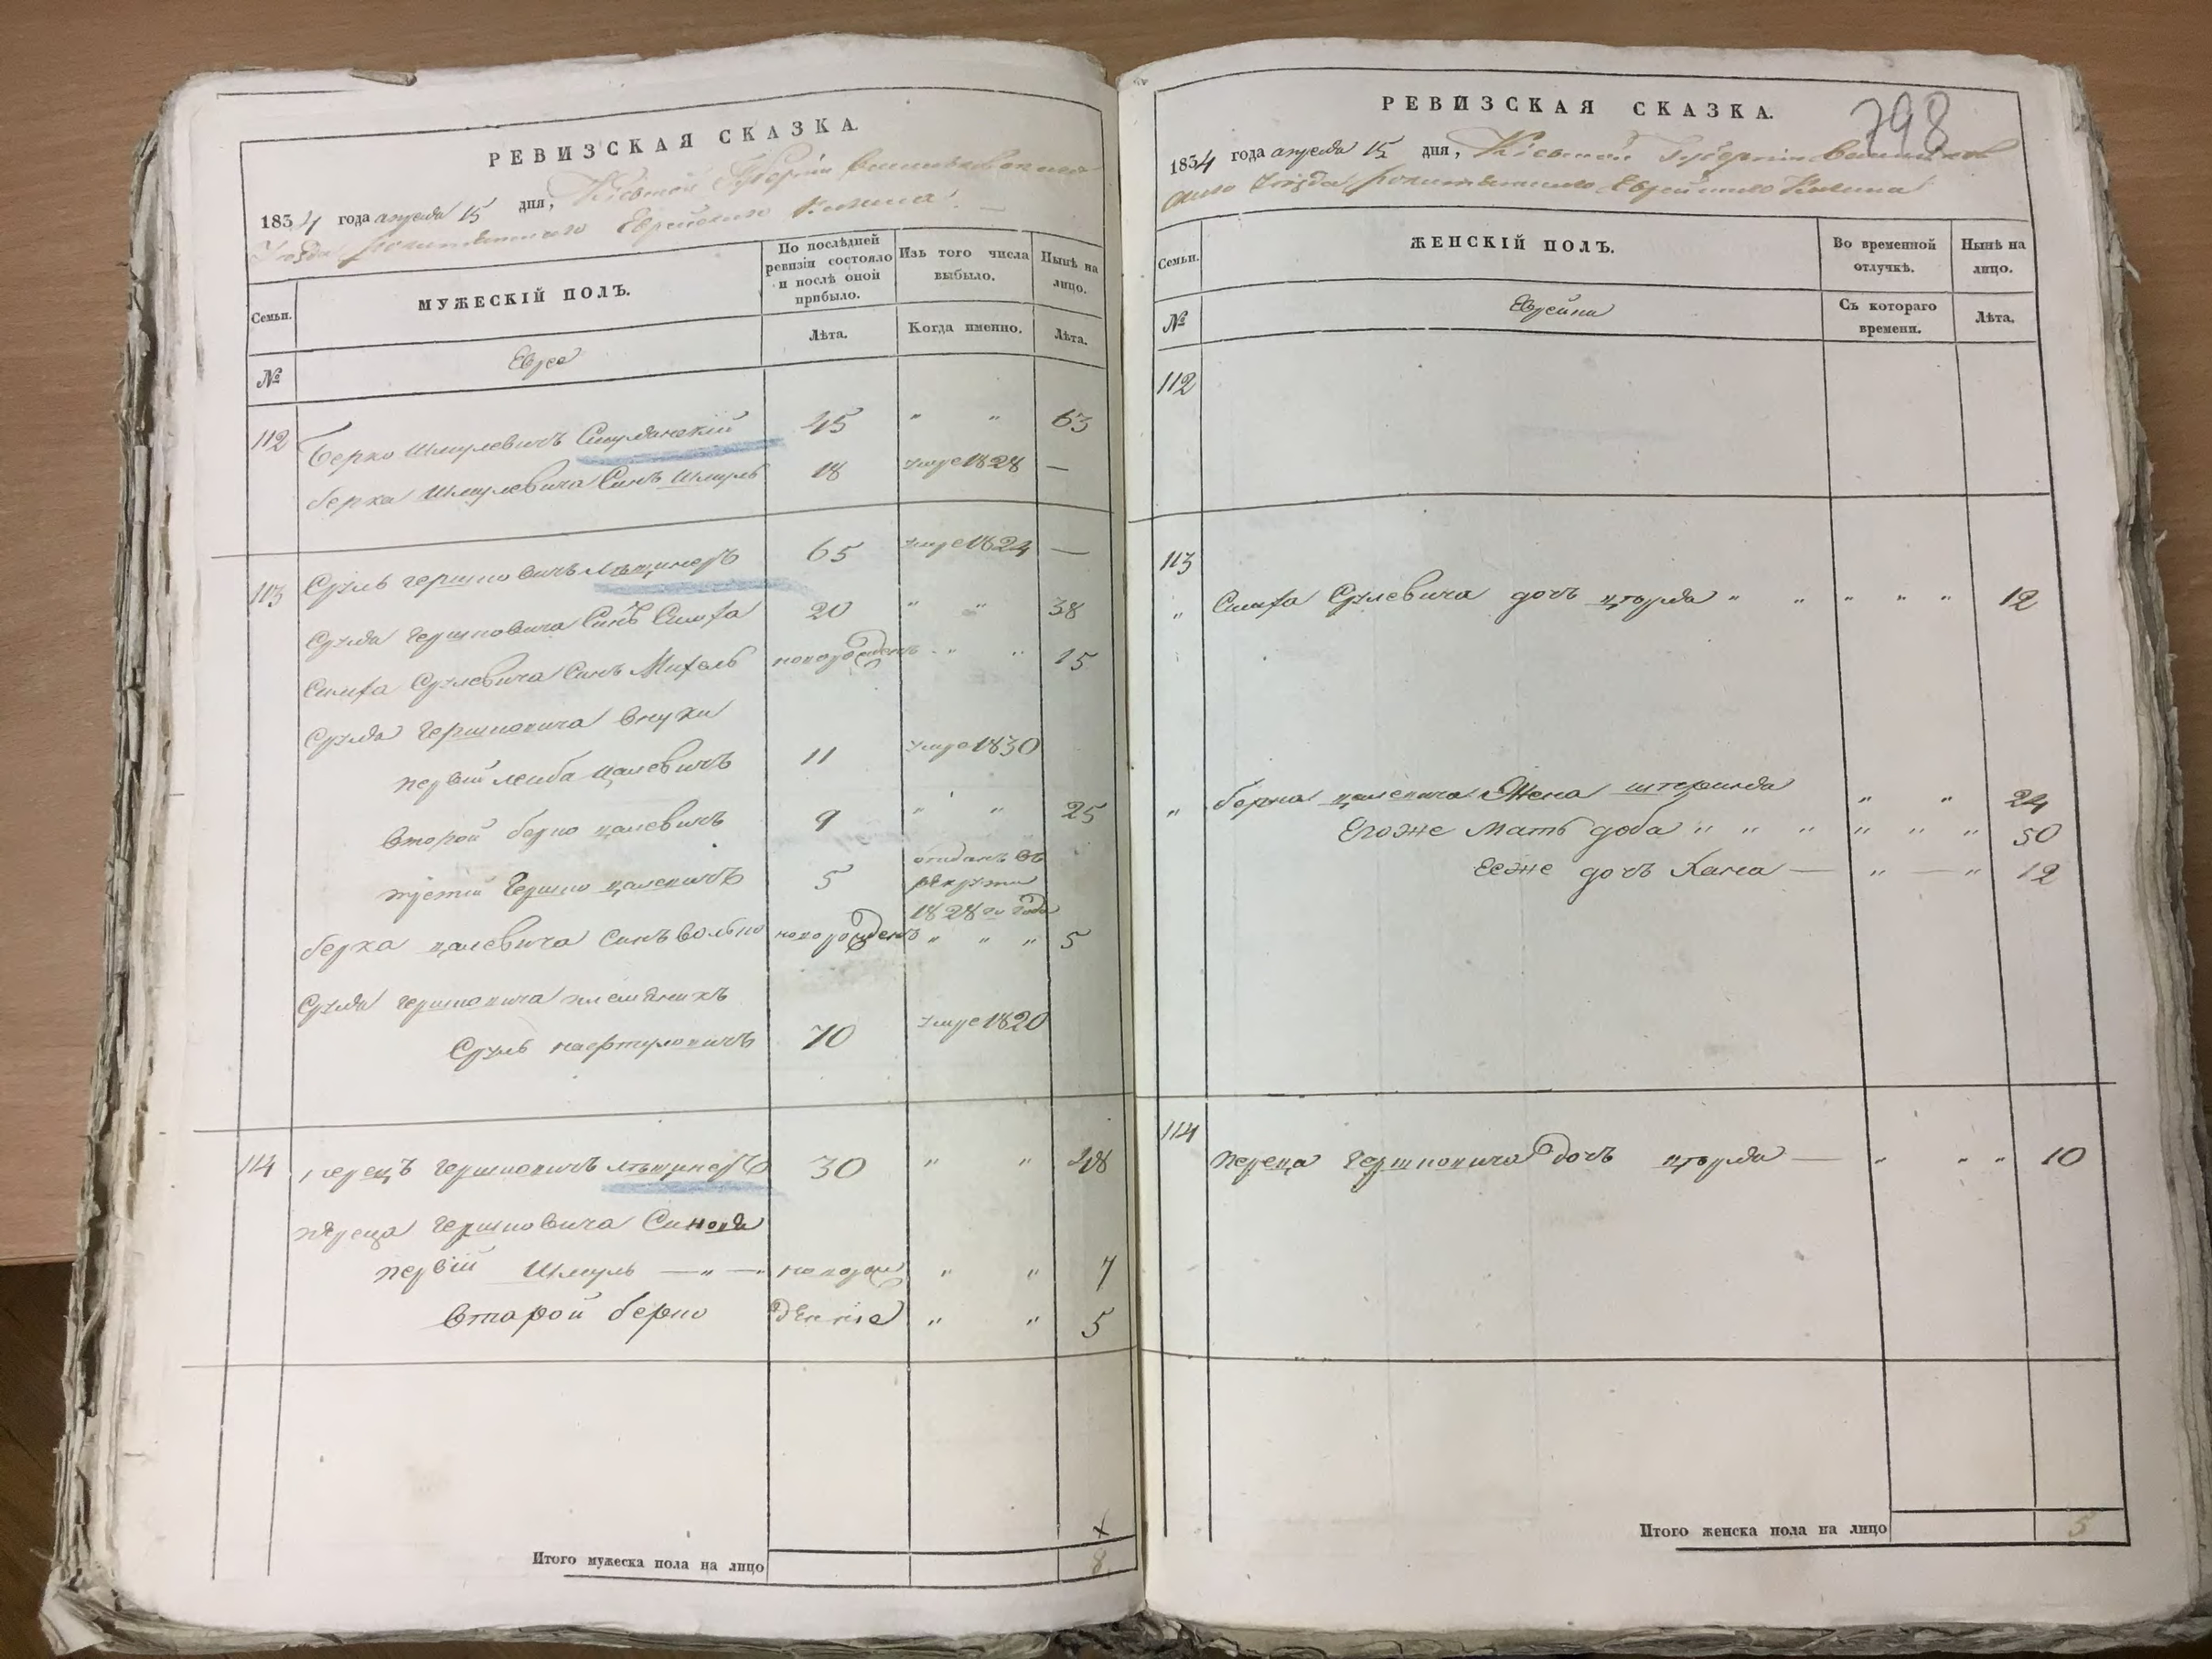 РЕВИЗСКАЯ СКАЗКА.
1834 года апреля 15 дня, Кіевской Губерніи Васильковскаго
Уѣзда Еврейскаго Кагала
Семьи.
МУЖЕСКІЙ ПОЛЪ.
По послѣдней ревизіи состояло и послѣ оной прибыло.
Изъ того числа выбыло.
Нынѣ на лицо.
№
Евреи
Лѣта.
Когда именно.
Лѣта.
112 Берко Шмулевичъ 45 " " 63
берка Шмулевича Синъ Шмуль 18 умре 1828 —
113 Сруль гершковичъ 65 умре 1824 —
Сруля Гершковича Синъ Симха 20 " " 38
Симха Срулевича Синъ Михель новорожденъ " " 15
Сруля Гершковича внуки
первій лейба цалевичъ 11 умре 1830
второй берко цалевичъ 9 " " 25
третій Гершко цалевичъ 5 отданъ въ рекруты 1828го года
берка цалевича Синъ волько новорожденъ " " " 5
Сруля Гершковича племѣникъ
Сруль нафтуловичъ 70 умре 1820
114 перецъ гершковичъ 30 " " 48
переца Гершковича Синовя
первій Шмуль — " — новорож " " 7
второй берко деннie " " 5
х
Итого мужеска пола на лицо 8
РЕВИЗСКАЯ СКАЗКА.
798
1834 года апреля 15 дня, Кіевской Губерніи Васильков
скаго Уѣзда Еврейскаго Кагала
Семьи.
ЖЕНСКІЙ ПОЛЪ.
Во временной отлучкѣ.
Нынѣ на лицо.
№
Еврейки
Съ котораго времени.
Лѣта.
112
113
" Симха Срулевича дочь " " " " " 12
" берка цалевича Жена " " 24
Егоже Мать доба " " " " " " 50
Еяже дочь Хана — " — " 12
114
переца Гершковича дочь — " " " 10
Итого женска пола на лицо 5